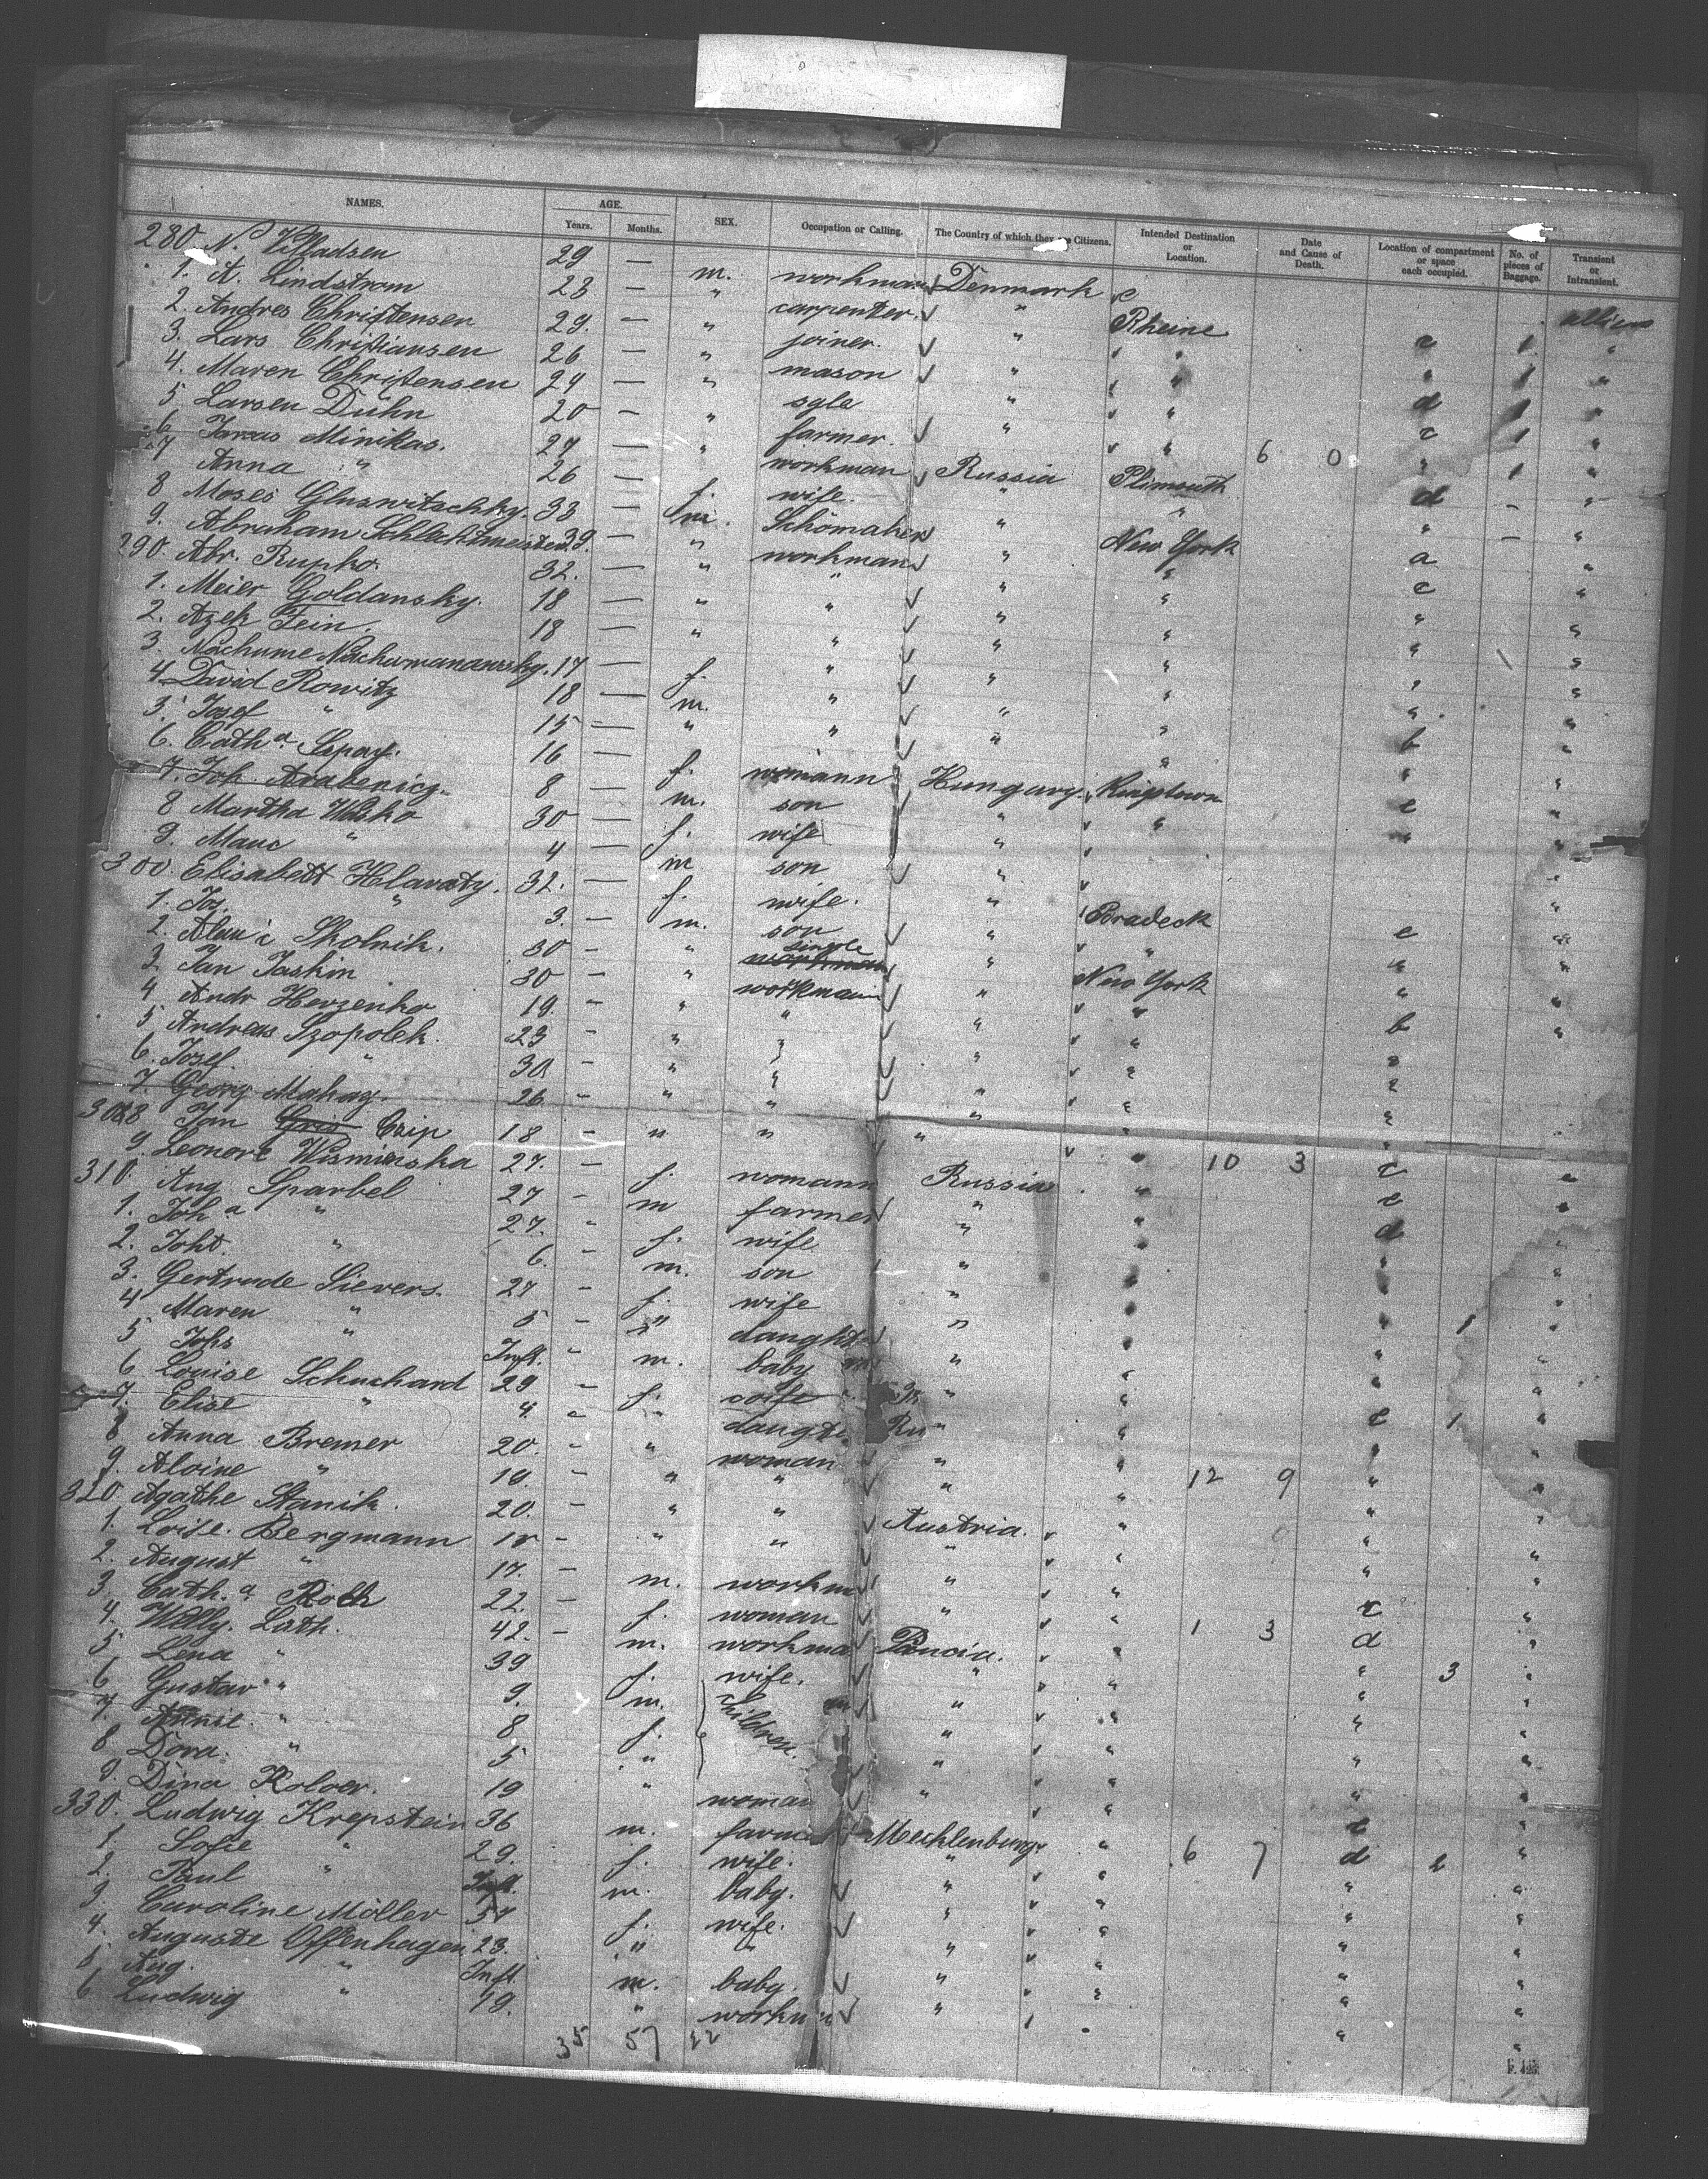 NAMES. AGE. Years. Months. SEX. Occupation or Calling. The Country of which they are Citizens. Intended Destination or Location. Date and Cause of Death. Location of compartment or space each occupied. No. of pieces of Baggage. Transient or Intransient.
280 N. Madsen 29 — m. workman Denmark
1. A. Lindstrom 23 — " carpenter. " Rheine
2. Andres Christensen 29. — " joiner. " " c 1 "
3. Lars Christiansen 26 — " mason " " " 1 "
4. Maren Christensen 24 — " sgle " " d 1 "
5 Larsen Duhn 20 — " farmer. " " c 1 "
6 Minikas. 27 — " workman Russia Plimouth 6 0 " 1 "
7 Anna " 26 — f. wife. " " d — "
8 Moses Gluswitschky. 33 — m. Schomaker " New York " — "
9. Abraham Schlachtmeister 39. — " workman " " a "
290. Abr. Rupko. 32. — " " " " c "
1. Meier Goldansky. 18 — " " " " " "
2. Azek Fein. 18 — " " " " " "
3. Nachume Nachumanowsky. 17 — f. " " " " "
4 David Rowitz 18 — m. " " " " "
5. Josef " 15 — " " " " b "
6. Cath.a Szpay. 16 — f. womann Hungary. Kingstown " "
7. Joh. Arabenicz. 8 — m. son " " c "
8 Martha Wasko 30 — f. wife " " "
9. " 4 — m son " "
300. Elisabett Hlavaty. 32. — f. wife. " Bradeck "
1. Jos. " 3. — m. son " " c "
2. Skolnik. 30 — " single workman " New York " "
3 Jan Jaskin 30 — " workman " " " "
4 Andr Herzenko 19. — " " " " b "
5 Andreas Szopolek. 23 — " " " " "
6. Josef. " 30 — " " " " "
7. Georg Mahag. 26 — " " " " "
308 Jan Gris Czip 18 — " " " " "
9. Leonore Wisminska 27. — f. womann Russia " 10 3 c "
310. Aug. Sparbel 27 — m farmer " " c "
1. Joh.a " 27. — f. wife " " d "
2. Joht. " 6. — m. son " " " "
3. Gertrude Sievers. 27 — f. wife " " " "
4 Maren " 5 — " daught " " " 1 "
5 Johs " Inft. — m. baby " " " "
6 Louise Schuchard 29 — f. wife " " " "
7. Elise " 4. — " daugte Ru " c 1 "
8 Anna Bremer 20. — " woman " " " "
9. Aloine " 19. — " " " " 12 9 " "
320 Agathe Stanik. 20. — " " Austria. " " "
1. Loise. Bergmann 18 — " " " " " "
2. August " 17. — m. workm " " " "
3. Cath.a Roth 22. — f. woman " " c "
4. Willy. Lath. 42. — m. workma " 1 3 d "
5 Lena " 39 f. wife. " " " 3 "
6 Gustav " 9. m. Children. " " " "
7. " 8 f. " " " "
8 Dora. " 5 " " " " "
9. Dina Koloer. 19 " woman " " " "
330. Ludwig Krepstein 36 m. farme Mecklenburg. " 6 7 c "
1. Sofie " 29. f. wife. " " d 2 "
2. Paul " Inft. m. baby. " " " "
3 Caroline Möller 57 f. wife. " " " "
4. Auguste Offenhagen 23. " " " " " "
5 Aug. " Inft. m. baby. " " " "
6 Ludwig " 19. " workm " " " "
35 57 22